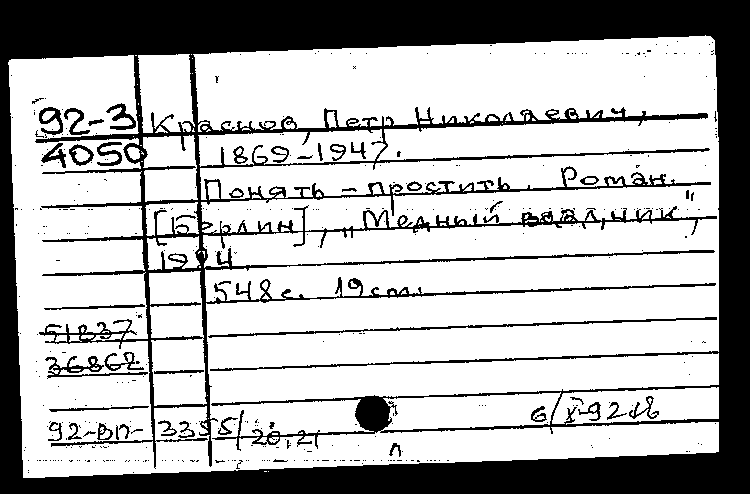 92-3 Краснов, Петр Николаевич,
4050 1869-1947.
Понять - простить. Роман.
[Берлин], „Медный всадник",
1924.
548 с. 19 см.
51837
36862
92-ВП- 3355/20,21
6/X-92
л